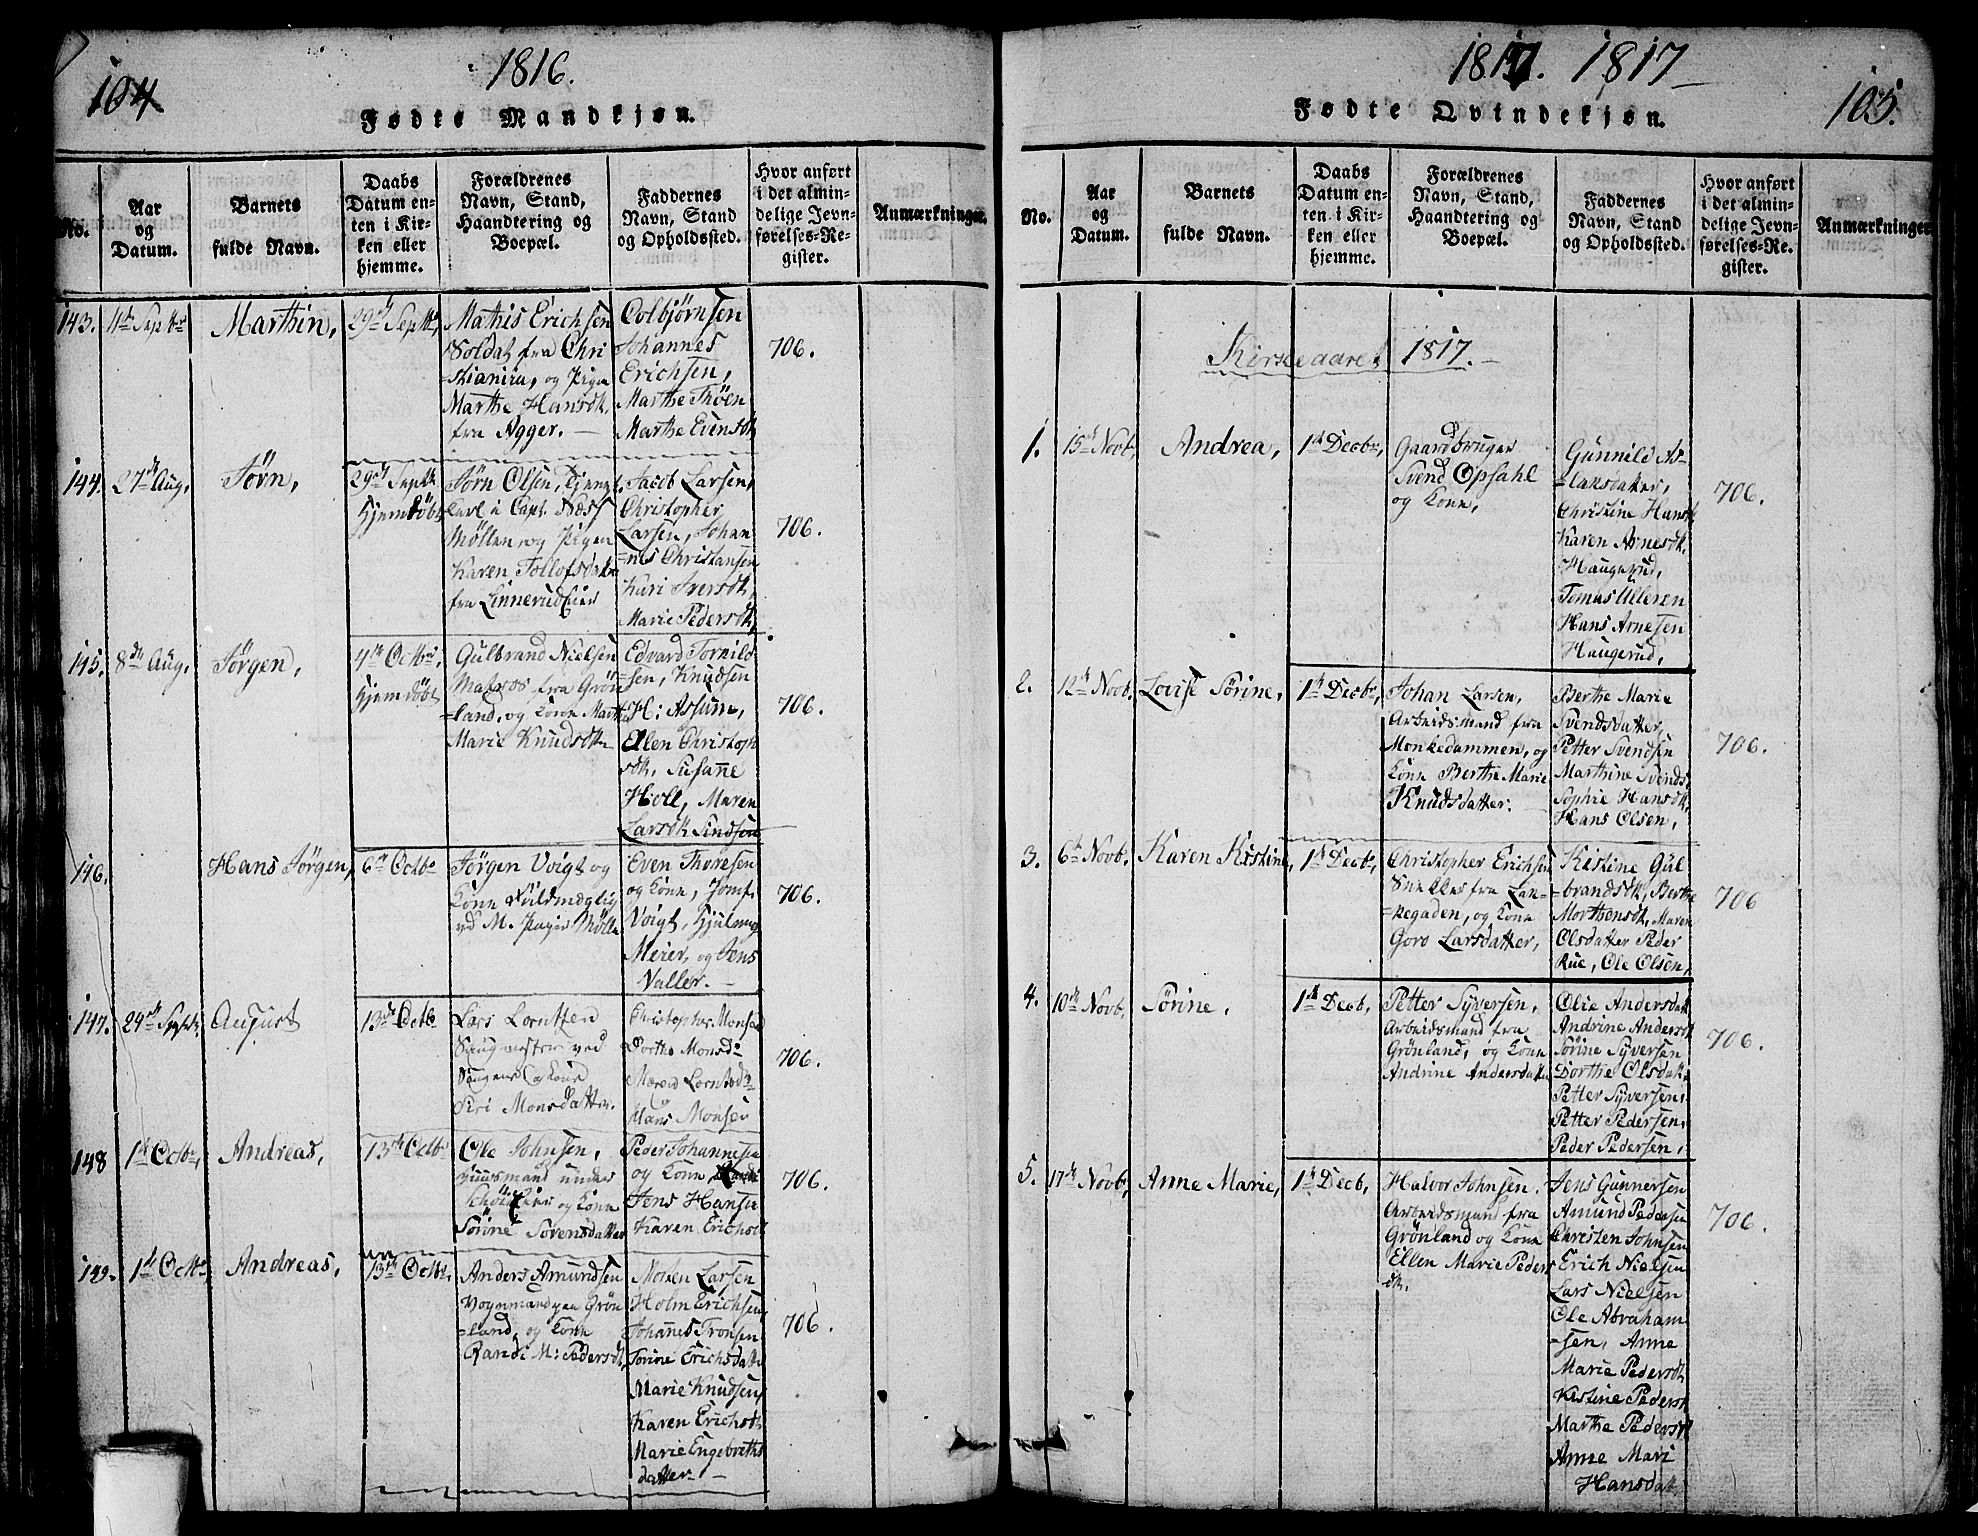 104
1816.
Fødte Mandkjøn.
No.
Aar og Datum.
Barnets fulde Navn.
Daabs Datum enten i Kirken eller hjemme.
Forældrenes Navn, Stand, Haandtering og Boepæl.
Faddernes Navn, Stand og Opholdssted.
Hvor anført i det almindelige Jevnførelses-Register.
Anmærkninger.
143.
Septbr
Marthin,
29de Septbr,
Mathis Erichsen
Soldat fra Chri
=stiania, og Pigen
Marthe Hansdtr.
fra Agger. —
Colbjørnsen
Johannes
Erichsen,
Marthe Thoen
Marthe Evensdtr
706.
144.
27de Aug,
Jørn,
29de Septbr
Hjemdøbt
Jørn Olsen, tjenest
karl i Capt. Næss
Møllen, og Pigen
Karen Tollofsdatr
fra Linnerud
Jacob Larsen,
Christopher
Larsen, Johan
=nes Christansen
Kari Iversdtr
Marie Pedersdtr,
706.
145.
8de Aug,
Jørgen,
4de Octbr,
Hjemdøbt
Gulbrand Nielsen
Matros fra Grøn
=land, og Kone Marthe
Marie Knudsdtr
Edvard Tornild
=sen, Knudsen
H: Assum,
Ellen Christoph
sdtr, Susanne
Holl, Maren
Larsdtr
706.
146.
Hans Jørgen,
6te Octbr
Jørgen Voigt og
Kone Fuldmægtig
ved M. Møller
Even Thoresen
og Kone, Jomf.
Voigt,
Meier, og Jens
Valler. —
706.
147.
24de Septbr
August
13de Octbr
Lars Lorntzen
Saugmester ved
Saugene og Kone
Siri Monsdatter.
Christopher Monsen
Dorthe Monsdr
Maren Lorntsdr
Hans Monsen
706.
148
1ste Octbr,
Andreas,
13de Octbr
Ole Johnsen,
Huusmand under
og Kone
Sørine Sørensdatter
Peder Johannesen
og Kone,
Jens Hansen
Karen Erichsdtr
706.
149.
1ste Octbr,
Andreas,
13de Octbr,
Anders Amundsen
Vognmand paa Grøn
=land, og Kone
Randi M: Pedersdtr,
Morten Larsen
Holm Erichsen,
Johannes Tronsen
Sørine Erichsdatr
Marie Knudsen,
Karen Erichsdtr
Marie Engebreths
datter —
706.
1817. 1817
105.
Fødte Qvindekjøn.
No.
Aar og Datum.
Barnets fulde Navn.
Daabs Datum enten i Kirken eller hjemme.
Forældrenes Navn, Stand, Haandtering og Boepæl.
Faddernes Navn, Stand og Opholdssted.
Hvor anført i det almindelige Jevnførelses-Register.
Anmærkninger
Kirkeaaret 1817. —
1.
15de Novb,
Andrea,
1ste Decbr,
Gaardbruger
Svend Opsahl
og Kone,
Gunnild As-
=laksdatter,
Christine Hansdtr
Karen Arnesdtr.
Haugerud,
Tomas Ulleren
Hans Arnesen
Haugerud,
706.
2.
12te Novb.
Lovise Sørine,
1ste Decbr,
Johan Larsen,
Arbeidsmand fra
Monkedammen, og
Kone Berthe Marie
Knudsdatter.
Berthe Marie
Svendsdatter,
Petter Svendsen
Marthine Svends
Sophie Hansdtr,
Hans Olsen,
706.
3.
6te Novb.
Karen Kistine,
1ste Decbr,
Christopher Erichsen
Snekker fra Lak-
=kegaden, og Kone
Goro Larsdatter,
Kistine Gul
=brandsdtr, Berthe
Morthensdtr, Maren
Olsdatter Peder
Rue, Ole Olsen,
706
4.
10de Novb,
Sørine,
1ste Decb,
Petter Syversen,
Arbeidsmand fra
Grønland, og Kone
Andrine Andersdatter
Olie Andersdatr
Andrine Andersdtr
Sørine Syversen
Dorthe Olsdatr,
Petter Syversen,
Petter Pedersen,
Peder Pedersen,
706.
5.
17de Novb,
Anne Marie,
1ste Decb,
Halvor Johnsen.
Arbeidsmand fra
Grønland og Kone
Ellen Marie Peders
dtr.
Jens Gunnersen
Amund Pedersen
Christen Johnsen
Erich Nielsen
Lars Nielsen
Ole Abraham
=sen, Anne
Marie Pedersdtr
Kistine Pedersdtr
Marthe Pedersdtr
Anne Mari
Hansdatr
706.